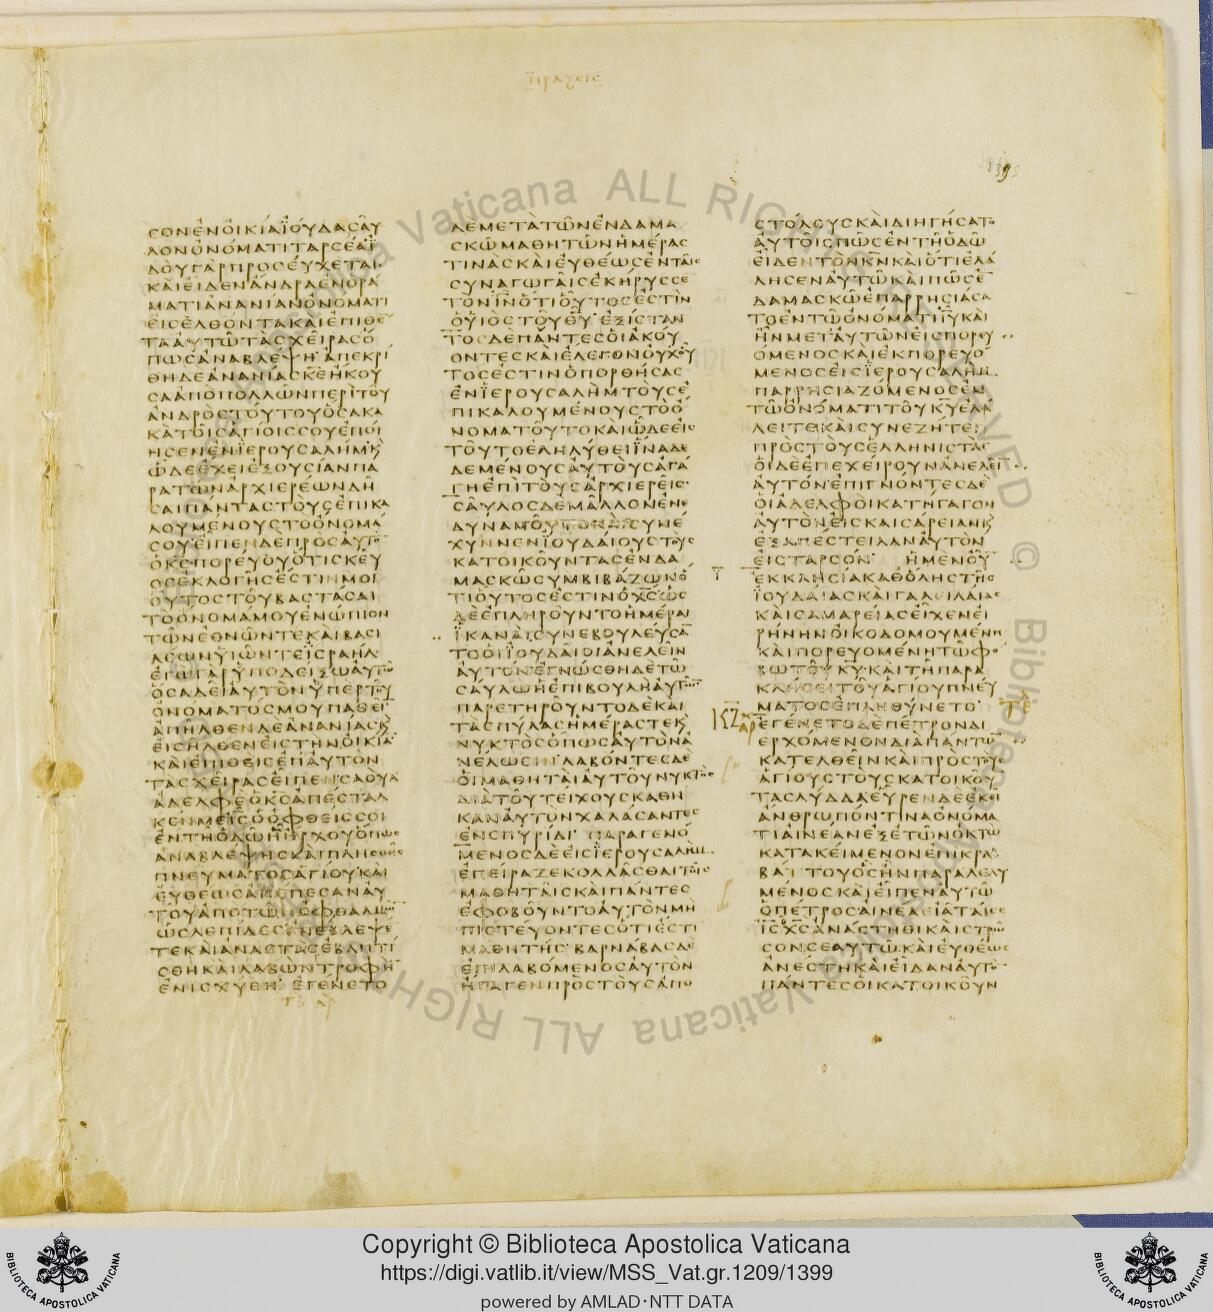 πραξεις
1395
ΣΟΝΕΝΟΙΚΙΑΪΟΥΔΑΣΑΥ
ΛΟΝΟΝΟΜΑΤΙΤΑΡΣΕΑΪ
ΔΟΥΓΑΡΠΡΟΣΕΥΧΕΤΑΙ
ΚΑΙΕΙΔΕΝΑΝΔΡΑΕΝΟΡΑ
ΜΑΤΙΑΝΑΝΙΑΝΟΝΟΜΑΤΙ
ΕΙΣΕΛΘΟΝΤΑΚΑΙΕΠΙΘΕ
ΤΑΑΥΤΩΤΑΣΧΕΙΡΑΣΟ
ΠΩΣΑΝΑΒΛΕΨΗΑΠΕΚΡΙ
ΘΗΔΕΑΝΑΝΙΑΣΚΕΗΚΟΥ
ΣΑΑΠΟΠΟΛΛΩΝΠΕΡΙΤΟΥ
ΑΝΔΡΟΣΤΟΥΤΟΥΟΣΑΚΑ
ΚΑΤΟΙΣΑΓΙΟΙΣΣΟΥΕΠΟΙ
ΗΣΕΝΕΝΪΕΡΟΥΣΑΛΗΜΚ
ΩΔΕΕΧΕΙΕΞΟΥΣΙΑΝΠΑ
ΡΑΤΩΝΑΡΧΙΕΡΕΩΝΔΗ
ΣΑΙΠΑΝΤΑΣΤΟΥΣΕΠΙΚΑ
ΛΟΥΜΕΝΟΥΣΤΟΟΝΟΜΑ
ΣΟΥΕΙΠΕΝΔΕΠΡΟΣΑΥΤΟ
ΟΚΣΠΟΡΕΥΟΥΟΤΙΣΚΕΥ
ΟΣΕΚΛΟΓΗΣΕΣΤΙΝΜΟΙ
ΟΥΤΟΣΤΟΥΒΑΣΤΑΣΑΙ
ΤΟΟΝΟΜΑΜΟΥΕΝΩΠΙΟΝ
ΤΩΝΕΘΝΩΝΤΕΚΑΙΒΑΣΙ
ΛΕΩΝΥΙΩΝΤΕΙΣΡΑΗΛ
ΕΓΩΓΑΡΥΠΟΔΕΙΞΩΑΥΤΩ
ΟΣΑΔΕΙΑΥΤΟΝΥΠΕΡΤΟΥ
ΟΝΟΜΑΤΟΣΜΟΥΠΑΘΕΙ
ΑΠΗΛΘΕΝΔΕΑΝΑΝΙΑΣΚ
ΕΙΣΗΛΘΕΝΕΙΣΤΗΝΟΙΚΙΑ
ΚΑΙΕΠΙΘΕΙΣΕΠΑΥΤΟΝ
ΤΑΣΧΕΙΡΑΣΕΙΠΕΝΣΑΟΥΛ
ΑΔΕΛΦΕΟΚΣΑΠΕΣΤΑΛ
ΚΕΝΜΕΙΣΟΟΦΘΕΙΣΣΟΙ
ΕΝΤΗΟΔΩΗΗΡΧΟΥΟΠΩΣ
ΑΝΑΒΛΕΨΗΣΚΑΙΠΛΗΣΘΗΣ
ΠΝΕΥΜΑΤΟΣΑΓΙΟΥΚΑΙ
ΕΥΘΕΩΣΑΠΕΠΕΣΑΝΑΥ
ΤΟΥΑΠΟΤΩΝΟΦΘΑΛΜΩΝ
ΩΣΛΕΠΙΔΕΣΕΝΕΒΛΕΨΕ
ΤΕΚΑΙΑΝΑΣΤΑΣΕΒΑΠΤΙ
ΣΘΗΚΑΙΛΑΒΩΝΤΡΟΦΗ
ΕΝΙΣΧΥΘΗΕΓΕΝΕΤΟ
ΔΕΜΕΤΑΤΩΝΕΝΔΑΜΑ
ΣΚΩΜΑΘΗΤΩΝΗΜΕΡΑΣ
ΤΙΝΑΣΚΑΙΕΥΘΕΩΣΕΝΤΑΙΣ
ΣΥΝΑΓΩΓΑΙΣΕΚΗΡΥΣΣΕ
ΤΟΝΙΝΟΤΙΟΥΤΟΣΕΣΤΙΝ
ΟΥΙΟΣΤΟΥΘΥΕΞΙΣΤΑΝ
ΤΟΣΔΕΠΑΝΤΕΣΟΙΑΚΟΥ
ΟΝΤΕΣΚΑΙΕΛΕΓΟΝΟΥΧΟΥ
ΤΟΣΕΣΤΙΝΟΠΟΡΘΗΣΑΣ
ΕΝΪΕΡΟΥΣΑΛΗΜΤΟΥΣΕ
ΠΙΚΑΛΟΥΜΕΝΟΥΣΤΟΟ
ΝΟΜΑΤΟΥΤΟΚΑΙΩΔΕΕΙΣ
ΤΟΥΤΟΕΛΗΛΥΘΕΙΪΝΑΔΕ
ΔΕΜΕΝΟΥΣΑΥΤΟΥΣΑΓΑ
ΓΗΕΠΙΤΟΥΣΑΡΧΙΕΡΕΙΣ
ΣΑΥΛΟΣΔΕΜΑΛΛΟΝΕΝΕ
ΔΥΝΑΜΟΥΤΟΚΑΙΣΥΝΕ
ΧΥΝΝΕΝΪΟΥΔΑΙΟΥΣΤΟΥΣ
ΚΑΤΟΙΚΟΥΝΤΑΣΕΝΔΑ
ΜΑΣΚΩΣΥΜΒΙΒΑΖΩΝΟ
ΤΙΟΥΤΟΣΕΣΤΙΝΟΧΣΩΣ
ΔΕΕΠΛΗΡΟΥΝΤΟΗΜΕΡΑΙ
ΪΚΑΝΑΙΣΥΝΕΒΟΥΛΕΥΣΑ
ΤΟΟΙΪΟΥΔΑΙΟΙΑΝΕΛΕΙΝ
ΑΥΤΟΝΕΓΝΩΣΘΗΔΕΤΩ
ΣΑΥΛΩΗΕΠΙΒΟΥΛΗΑΥΤΩΝ
ΠΑΡΕΤΗΡΟΥΝΤΟΔΕΚΑΙ
ΤΑΣΠΥΛΑΣΗΜΕΡΑΣΤΕΚ
ΝΥΚΤΟΣΟΠΩΣΑΥΤΟΝΑ
ΝΕΛΩΣΙΝΛΑΒΟΝΤΕΣΔΕ
ΟΙΜΑΘΗΤΑΙΑΥΤΟΥΝΥΚΤΟΣ
ΔΙΑΤΟΥΤΕΙΧΟΥΣΚΑΘΗ
ΚΑΝΑΥΤΟΝΧΑΛΑΣΑΝΤΕΣ
ΕΝΣΠΥΡΙΔΙΠΑΡΑΓΕΝΟ
ΜΕΝΟΣΔΕΕΙΣΪΕΡΟΥΣΑΛΗΜ
ΕΠΕΙΡΑΖΕΚΟΛΛΑΣΘΑΙΤΟΙΣ
ΜΑΘΗΤΑΙΣΚΑΙΠΑΝΤΕΣ
ΕΦΟΒΟΥΝΤΟΑΥΤΟΝΜΗ
ΠΙΣΤΕΥΟΝΤΕΣΟΤΙΕΣΤΙ
ΜΑΘΗΤΗΣΒΑΡΝΑΒΑΣΔΕ
ΕΠΙΛΑΒΟΜΕΝΟΣΑΥΤΟΝ
ΗΓΑΓΕΝΠΡΟΣΤΟΥΣΑΠΟ
ΣΤΟΛΟΥΣΚΑΙΔΙΗΓΗΣΑΤΟ
ΑΥΤΟΙΣΠΩΣΕΝΤΗΟΔΩ
ΕΙΔΕΝΤΟΝΚΝΚΑΙΟΤΙΕΛΑ
ΛΗΣΕΝΑΥΤΩΚΑΙΠΩΣΕ
ΔΑΜΑΣΚΩΕΠΑΡΡΗΣΙΑΣΑ
ΤΟΕΝΤΩΟΝΟΜΑΤΙΙΥΚΑΙ
ΗΝΜΕΤΑΥΤΩΝΕΙΣΠΟΡΕΥ
ΟΜΕΝΟΣΚΑΙΕΚΠΟΡΕΥΟ
ΜΕΝΟΣΕΙΣΪΕΡΟΥΣΑΛΗΜ
ΠΑΡΡΗΣΙΑΖΟΜΕΝΟΣΕΝ
ΤΩΟΝΟΜΑΤΙΤΟΥΚΥΕΛΑ
ΛΕΙΤΕΚΑΙΣΥΝΕΖΗΤΕΙ
ΠΡΟΣΤΟΥΣΕΛΛΗΝΙΣΤΑΣ
ΟΙΔΕΕΠΕΧΕΙΡΟΥΝΑΝΕΛΕΙ
ΑΥΤΟΝΕΠΙΓΝΟΝΤΕΣΔΕ
ΟΙΑΔΕΛΦΟΙΚΑΤΗΓΑΓΟΝ
ΑΥΤΟΝΕΙΣΚΑΙΣΑΡΕΙΑΝΚ
ΕΞΑΠΕΣΤΕΙΛΑΝΑΥΤΟΝ
ΕΙΣΤΑΡΣΟΝ ΗΜΕΝΟΥ
ΕΚΚΛΗΣΙΑΚΑΘΟΛΗΣΤΗΣ
ΪΟΥΔΑΙΑΣΚΑΙΓΑΛΕΙΛΑΙΑΣ
ΚΑΙΣΑΜΑΡΕΙΑΣΕΙΧΕΝΕΙ
ΡΗΝΗΝΟΙΚΟΔΟΜΟΥΜΕΝΗ
ΚΑΙΠΟΡΕΥΟΜΕΝΗΤΩΦΟ
ΒΩΤΟΥΚΥΚΑΙΤΗΠΑΡΑ
ΚΛΗΣΕΙΤΟΥΑΓΙΟΥΠΝΕΥ
ΜΑΤΟΣΕΠΛΗΘΥΝΕΤΟ
ΕΓΕΝΕΤΟΔΕΠΕΤΡΟΝΔΙ
ΕΡΧΟΜΕΝΟΝΔΙΑΠΑΝΤΩ
ΚΑΤΕΛΘΕΙΝΚΑΙΠΡΟΣΤΟΥΣ
ΑΓΙΟΥΣΤΟΥΣΚΑΤΟΙΚΟΥ
ΤΑΣΛΥΔΔΑΕΥΡΕΝΔΕΕΚΕΙ
ΑΝΘΡΩΠΟΝΤΙΝΑΟΝΟΜΑ
ΤΙΑΙΝΕΑΝΕΞΕΤΩΝΟΚΤΩ
ΚΑΤΑΚΕΙΜΕΝΟΝΕΠΙΚΡΑ
ΒΑΤΤΟΥΟΣΗΝΠΑΡΑΛΕΛΥ
ΜΕΝΟΣΚΑΙΕΙΠΕΝΑΥΤΩ
ΟΠΕΤΡΟΣΑΙΝΕΑΙΑΤΑΙΣΕ
ΙΣΧΣΑΝΑΣΤΗΘΙΚΑΙΣΤΡΩ
ΣΟΝΣΕΑΥΤΩΚΑΙΕΥΘΕΩΣ
ΑΝΕΣΤΗΚΑΙΕΙΔΑΝΑΥΤΟ
ΠΑΝΤΕΣΟΙΚΑΤΟΙΚΟΥΝ
ΚΖ
Copyright © Biblioteca Apostolica Vaticana
https://digi.vatlib.it/view/MSS_Vat.gr.1209/1399
powered by AMLAD·NTT DATA
BIBLIOTECA APOSTOLICA VATICANA
BIBLIOTECA APOSTOLICA VATICANA